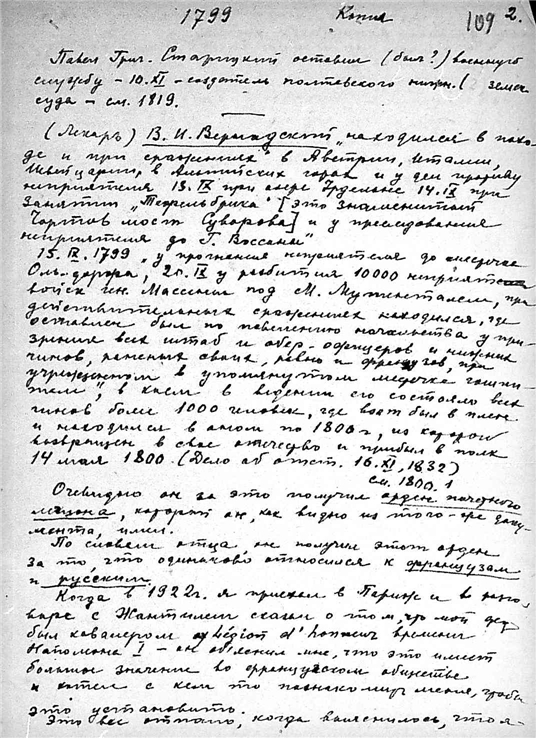 1799 Копия 109 2.
Павел Григ. Старицкий оставил (был?) военную
службу – 10.XI – создатель полтавского нижн. ( земск
суда – см. 1819.
(Лекарь) В. И. Вернадский „находился в похо-
де и при сражениях в Австрии, Италии,
Швейцарии, в Альпийских горах и у дел противу
неприятеля 13.IX при озере 14.IX при
занятии „Тейфельбрика" [это знаменитый
Чортов мост Суворова] и у преследования
неприятеля до Г.
15.IX.1799 „у прогнания неприятеля до местечка
20.IX у разбития 10000 неприятел
войск ген. Массены под М. Мутенталем, при
действительных сражениях находился, где
оставлен был по повелению начальства у при-
зрения всех штаб и обер-офицеров и нижних
чинов, раненых своих, равно и французов, при
учрежденном в упомянутом местечке гошпи-
тале", в коем в ведении его состояло всех
чинов более 1000 человек, где взят был в плен
и находился в оном по 1800 г, из которого
возвращен в свое отечество и прибыл в полк
14 мая 1800. (Дело об отст. 16.XI.1832)
см. 1800, 1
Очевидно он за это получил орден почетного
легиона, который он, как видно из того-же доку-
мента, имел.
По словам отца, он получил этот орден
за то, что одинаково относился к французам
и русским.
Когда в 1922 г. я приехал в Париж и в разго-
воре с Жантилем сказал о том, что мой дед
был кавалером légion d'honneur времени
Наполеона I – он об'яснил мне, что это имеет
большое значение во французском обществе
и хотел с кем то познакомить меня, чтобы
это установить.
Это все отпало, когда выяснилось, что я-